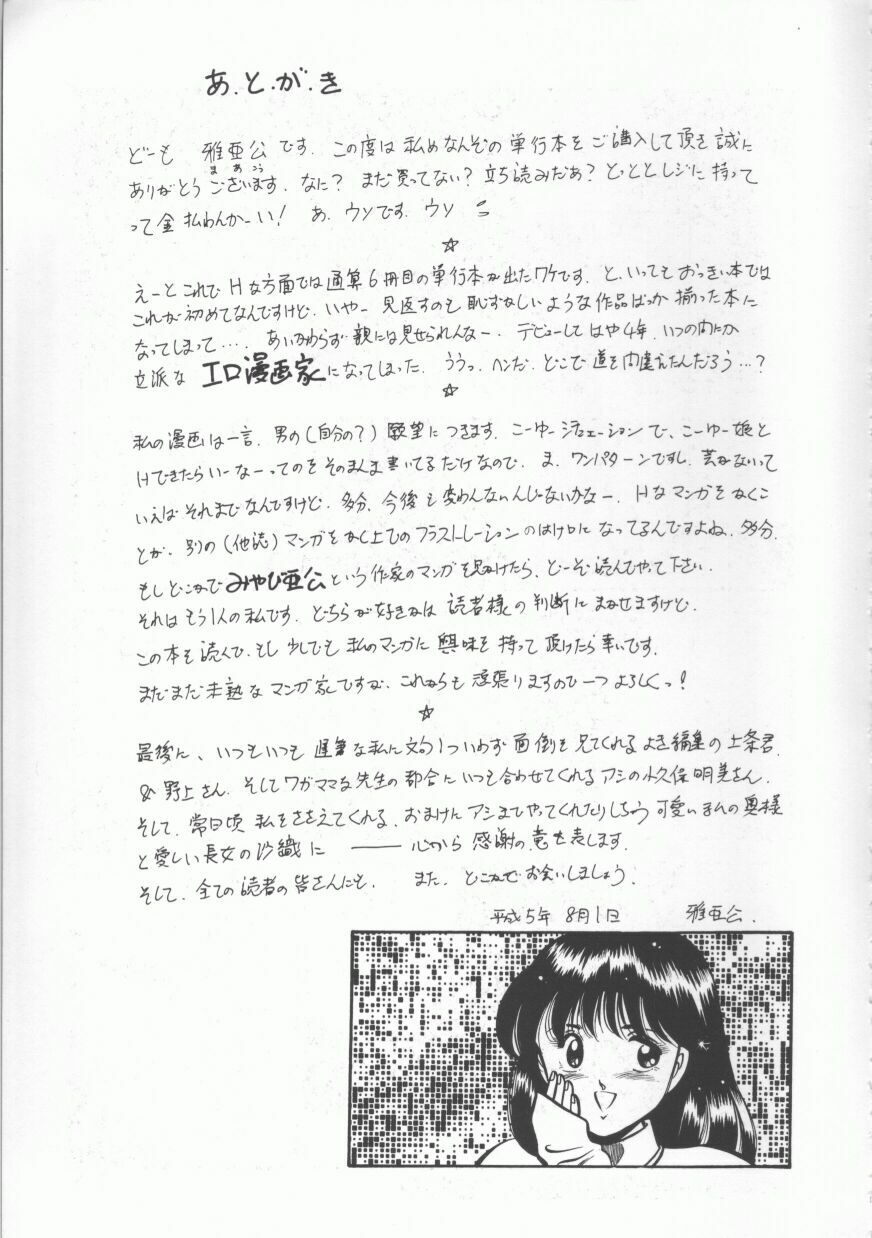 あ.と.が.き
どーも 雅亜公です. この度は私めなんぞの単行本をご購入して頂き誠に
まあこう
ありがとうございます. なに? まだ買ってない? 立ち読みだあ? とっととレジに持って
って金払わんかーい! あ. ウソです. ウソ
☆
えーとこれでHな方面では通算6冊目の単行本が出たワケです. と、いってもおっきい本では
これが初めてなんですけど. いやー 見返すのも恥ずかしいような作品ばっか揃った本に
なってしまって.... あいかわらず親には見せられんなー. デビューしてはや4年. いつの間にか
立派な エロ漫画家になってしまった. ううっ. ヘンだ. どこで道を間違えたんだろう...?
☆
私の漫画は一言. 男の(自分の?)願望につきます. こーゆーシチュエーションで、こーゆー娘と
Hできたらいーなーってのをそのまんま書いてるだけなので. ま、ワンパターンですし、芸がないって
いえばそれまでなんですけど. 多分、今後も変わんないんじゃないかなー. Hなマンガをかくこ
とが. 別の(他誌)マンガをかく上でのフラストレーションのはけ口になってるんですよね. 多分.
もしどこかでみやび亜公という作家のマンガを見かけたら、どーぞ読んでやって下さい.
それはもう1人の私です. どちらが好きかは 読者様の判断にまかせますけど.
この本を読んで、もし少しでも私のマンガに興味を持って頂けたら幸いです.
まだまだ未熟なマンガ家ですが、これからも頑張りますので一つよろしくっ!
☆
最後に、いつもいつも 遅筆な私に文句1ついわず面倒を見てくれるよき編集の上条君.
& 野上さん. そしてワガママな先生の都合にいつも合わせてくれるアシの小久保明美さん.
そして. 常日頃 私をささえてくれる. おまけにアシまでやってくれたりしちゃう可愛いまんの奥様
と愛しい長女の沙織に ―― 心から感謝の意を表します.
そして. 全ての読者の皆さんにも. また. どこかでお会いしましょう.
平成5年 8月1日 雅亜公.